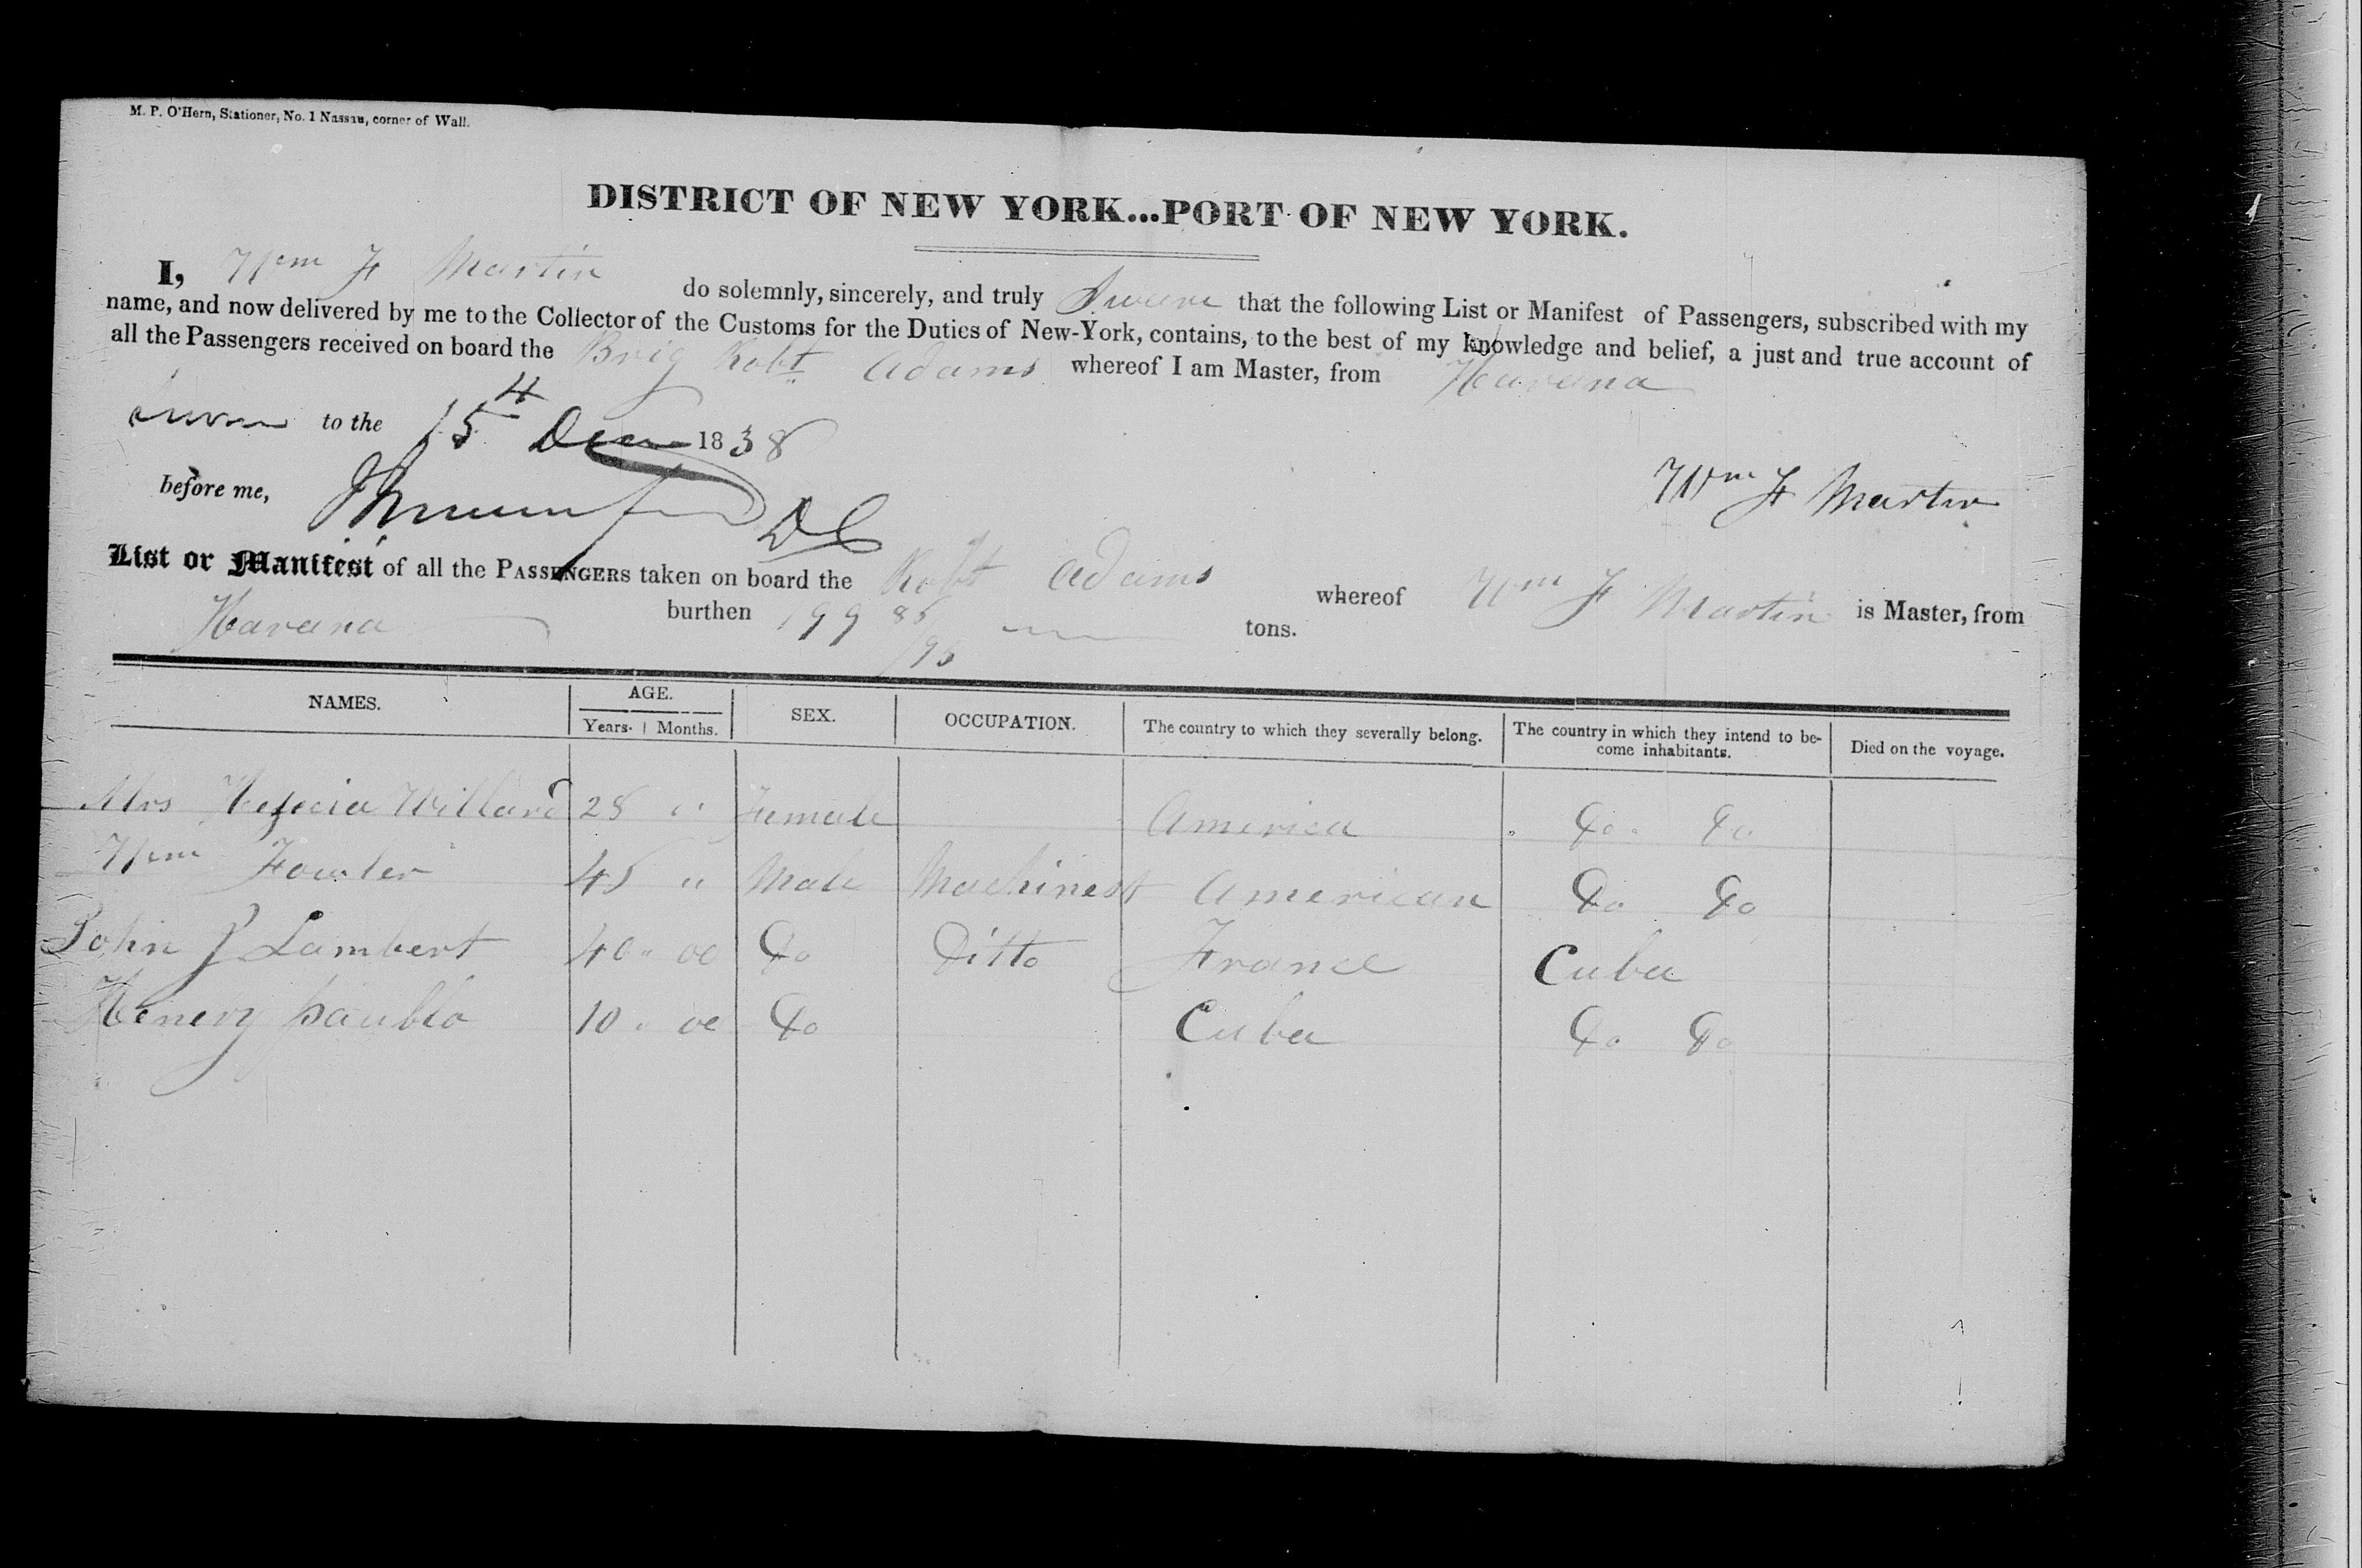 M. P. O'Hern, Stationer, No. 1 Nassau, corner of Wall.
DISTRICT OF NEW YORK...PORT OF NEW YORK.
I, Wm F Martin do solemnly, sincerely, and truly Swear that the following List or Manifest of Passengers, subscribed with my
name, and now delivered by me to the Collector of the Customs for the Duties of New-York, contains, to the best of my knowledge and belief, a just and true account of
all the Passengers received on board the Brig Robt Adams whereof I am Master, from Havana
Sworn to the 15th Decr 1838
Wm F Martin
before me, DC
List or Manifest of all the PASSENGERS taken on board the Robt Adams whereof Wm F Martin is Master, from
Havana burthen 199 85/95 tons.
NAMES. AGE. SEX. OCCUPATION. The country to which they severally belong. The country in which they intend to be- Died on the voyage.
Years. Months. come inhabitants.
Mrs Willard 28 " Female America Do. Do
Wm Fowler 45 " Male Machinest American Do Do
John P Lambert 40 " 00 Do Ditto France Cuba
Henery 10 " 00 Do Cuba Do Do